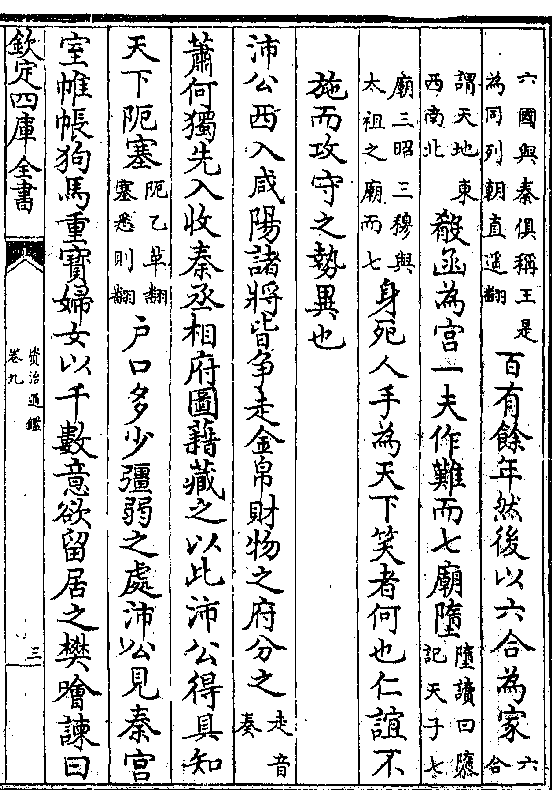 六國與秦俱稱王是
為同列朝直遥翻
百有餘年然後以六合為家
六
合
謂天地東
西南北
殽函為宫一夫作難而七廟墮
墮讀曰隳
記天子七
廟三昭三穆與
太祖之廟而七
身死人手為天下笑者何也仁誼不
施而攻守之勢異也
沛公西入咸陽諸將皆争走金帛財物之府分之
走音
奏
蕭何獨先入收秦丞相府圖籍藏之以此沛公得具知
天下阨塞
阨乙革翻
塞悉則翻
户口多少彊弱之處沛公見秦宫
室帷帳狗馬重寶婦女以千數意欲留居之樊噲諫曰
欽定四庫全書
資治通鑑
卷九
三